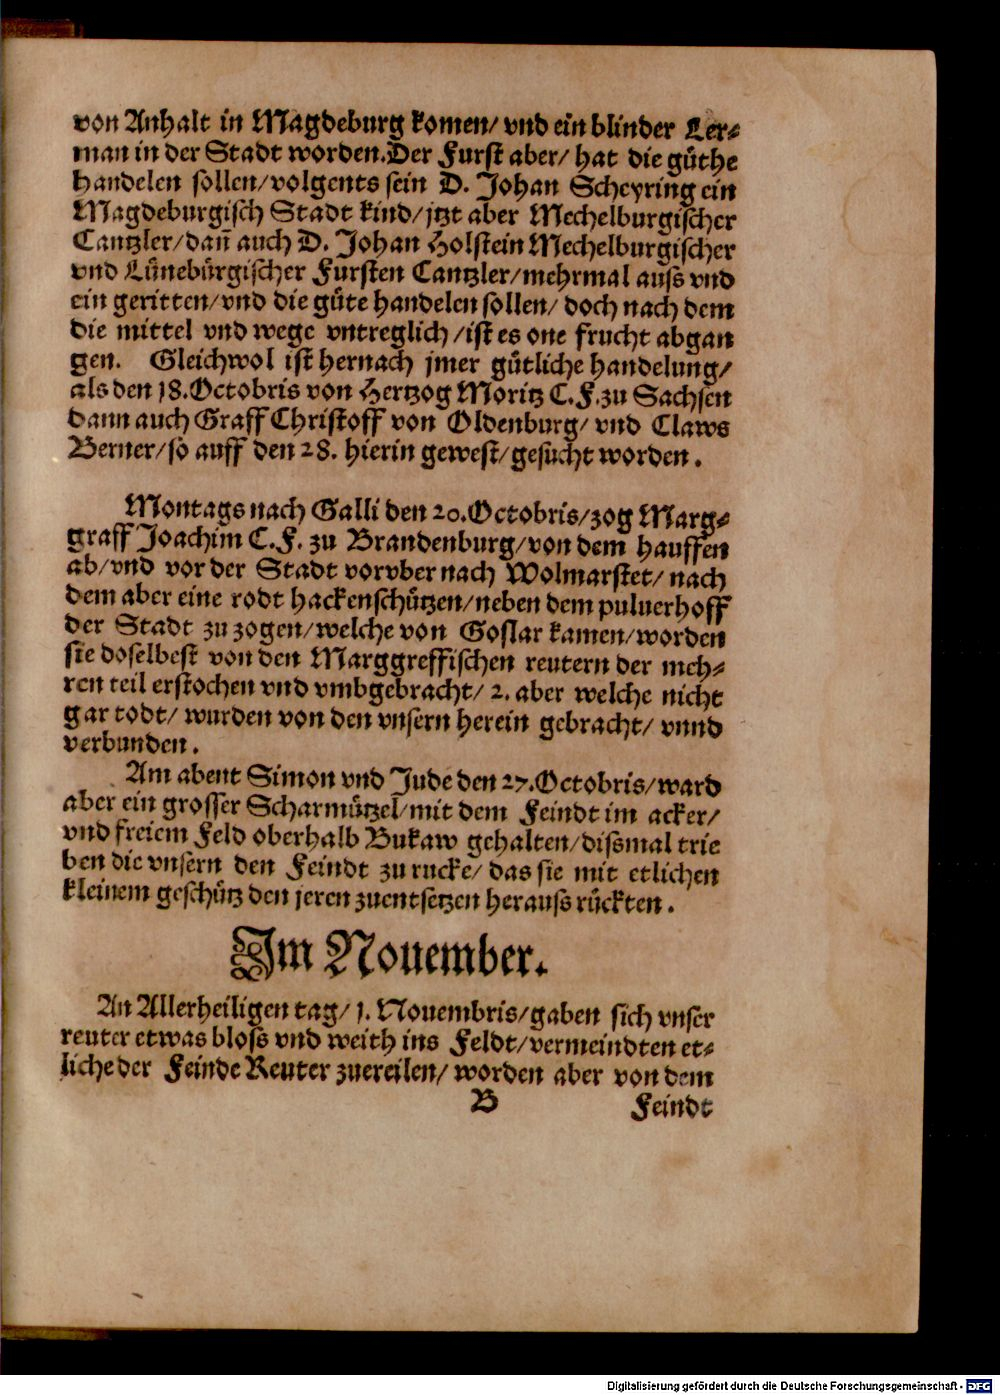 von Anhalt in Magdeburg komen/ vnd ein blinder Ler⸗
man in der Stadt worden. Der Furst aber/ hat die güthe
handelen sollen/ volgents sein D. Johan Scheyring ein
Magdeburgisch Stadt kind/ jtzt aber Mechelburgischer
Cantzler/ dañ auch D. Johan Holstein Mechelburgischer
vnd Lünebürgischer Fursten Cantzler/ mehrmal auss vnd
ein geritten/ vnd die güte handelen sollen/ doch nach dem
die mittel vnd wege vntreglich/ ist es one frucht abgan
gen. Gleichwol ist hernach jmer gütliche handelung/
als den 18. Octobris von Hertzog Moritz C. F. zu Sachsen
dann auch Graff Christoff von Oldenburg/ vnd Claws
Berner/ so auff den 28. hierin gewest/ gesucht worden.
Montags nach Galli den 20. Octobris/ zog Marg⸗
graff Joachim C. F. zu Brandenburg/ von dem hauffen
ab/ vnd vor der Stadt vorvber nach Wolmarstet/ nach
dem aber eine rodt hackenschützen/ neben dem puluerhoff
der Stadt zu zogen/ welche von Goslar kamen/ worden
sie doselbest von den Marggreffischen reutern der meh⸗
ren teil erstochen vnd vmbgebracht/ 2. aber welche nicht
gar todt/ wurden von den vnsern herein gebracht/ vnnd
verbunden.
Am abent Simon vnd Jude den 27. Octobris/ ward
aber ein grosser Scharmützel/ mit dem Feindt im acker/
vnd freiem Feld oberhalb Bukaw gehalten/ dissmal trie
ben die vnsern den Feindt zu rucke/ das sie mit etlichen
kleinem geschütz den jeren zuentsetzen herauss rückten.
Im Nouember.
An Allerheiligen tag/ 1. Nouembris/ gaben sich vnser
reuter etwas bloss vnd weith ins Feldt/ vermeindten et⸗
liche der Feinde Reuter zuereilen/ worden aber von dem
B Feindt
Digitalisierung gefördert durch die Deutsche Forschungsgemeinschaft - DFG